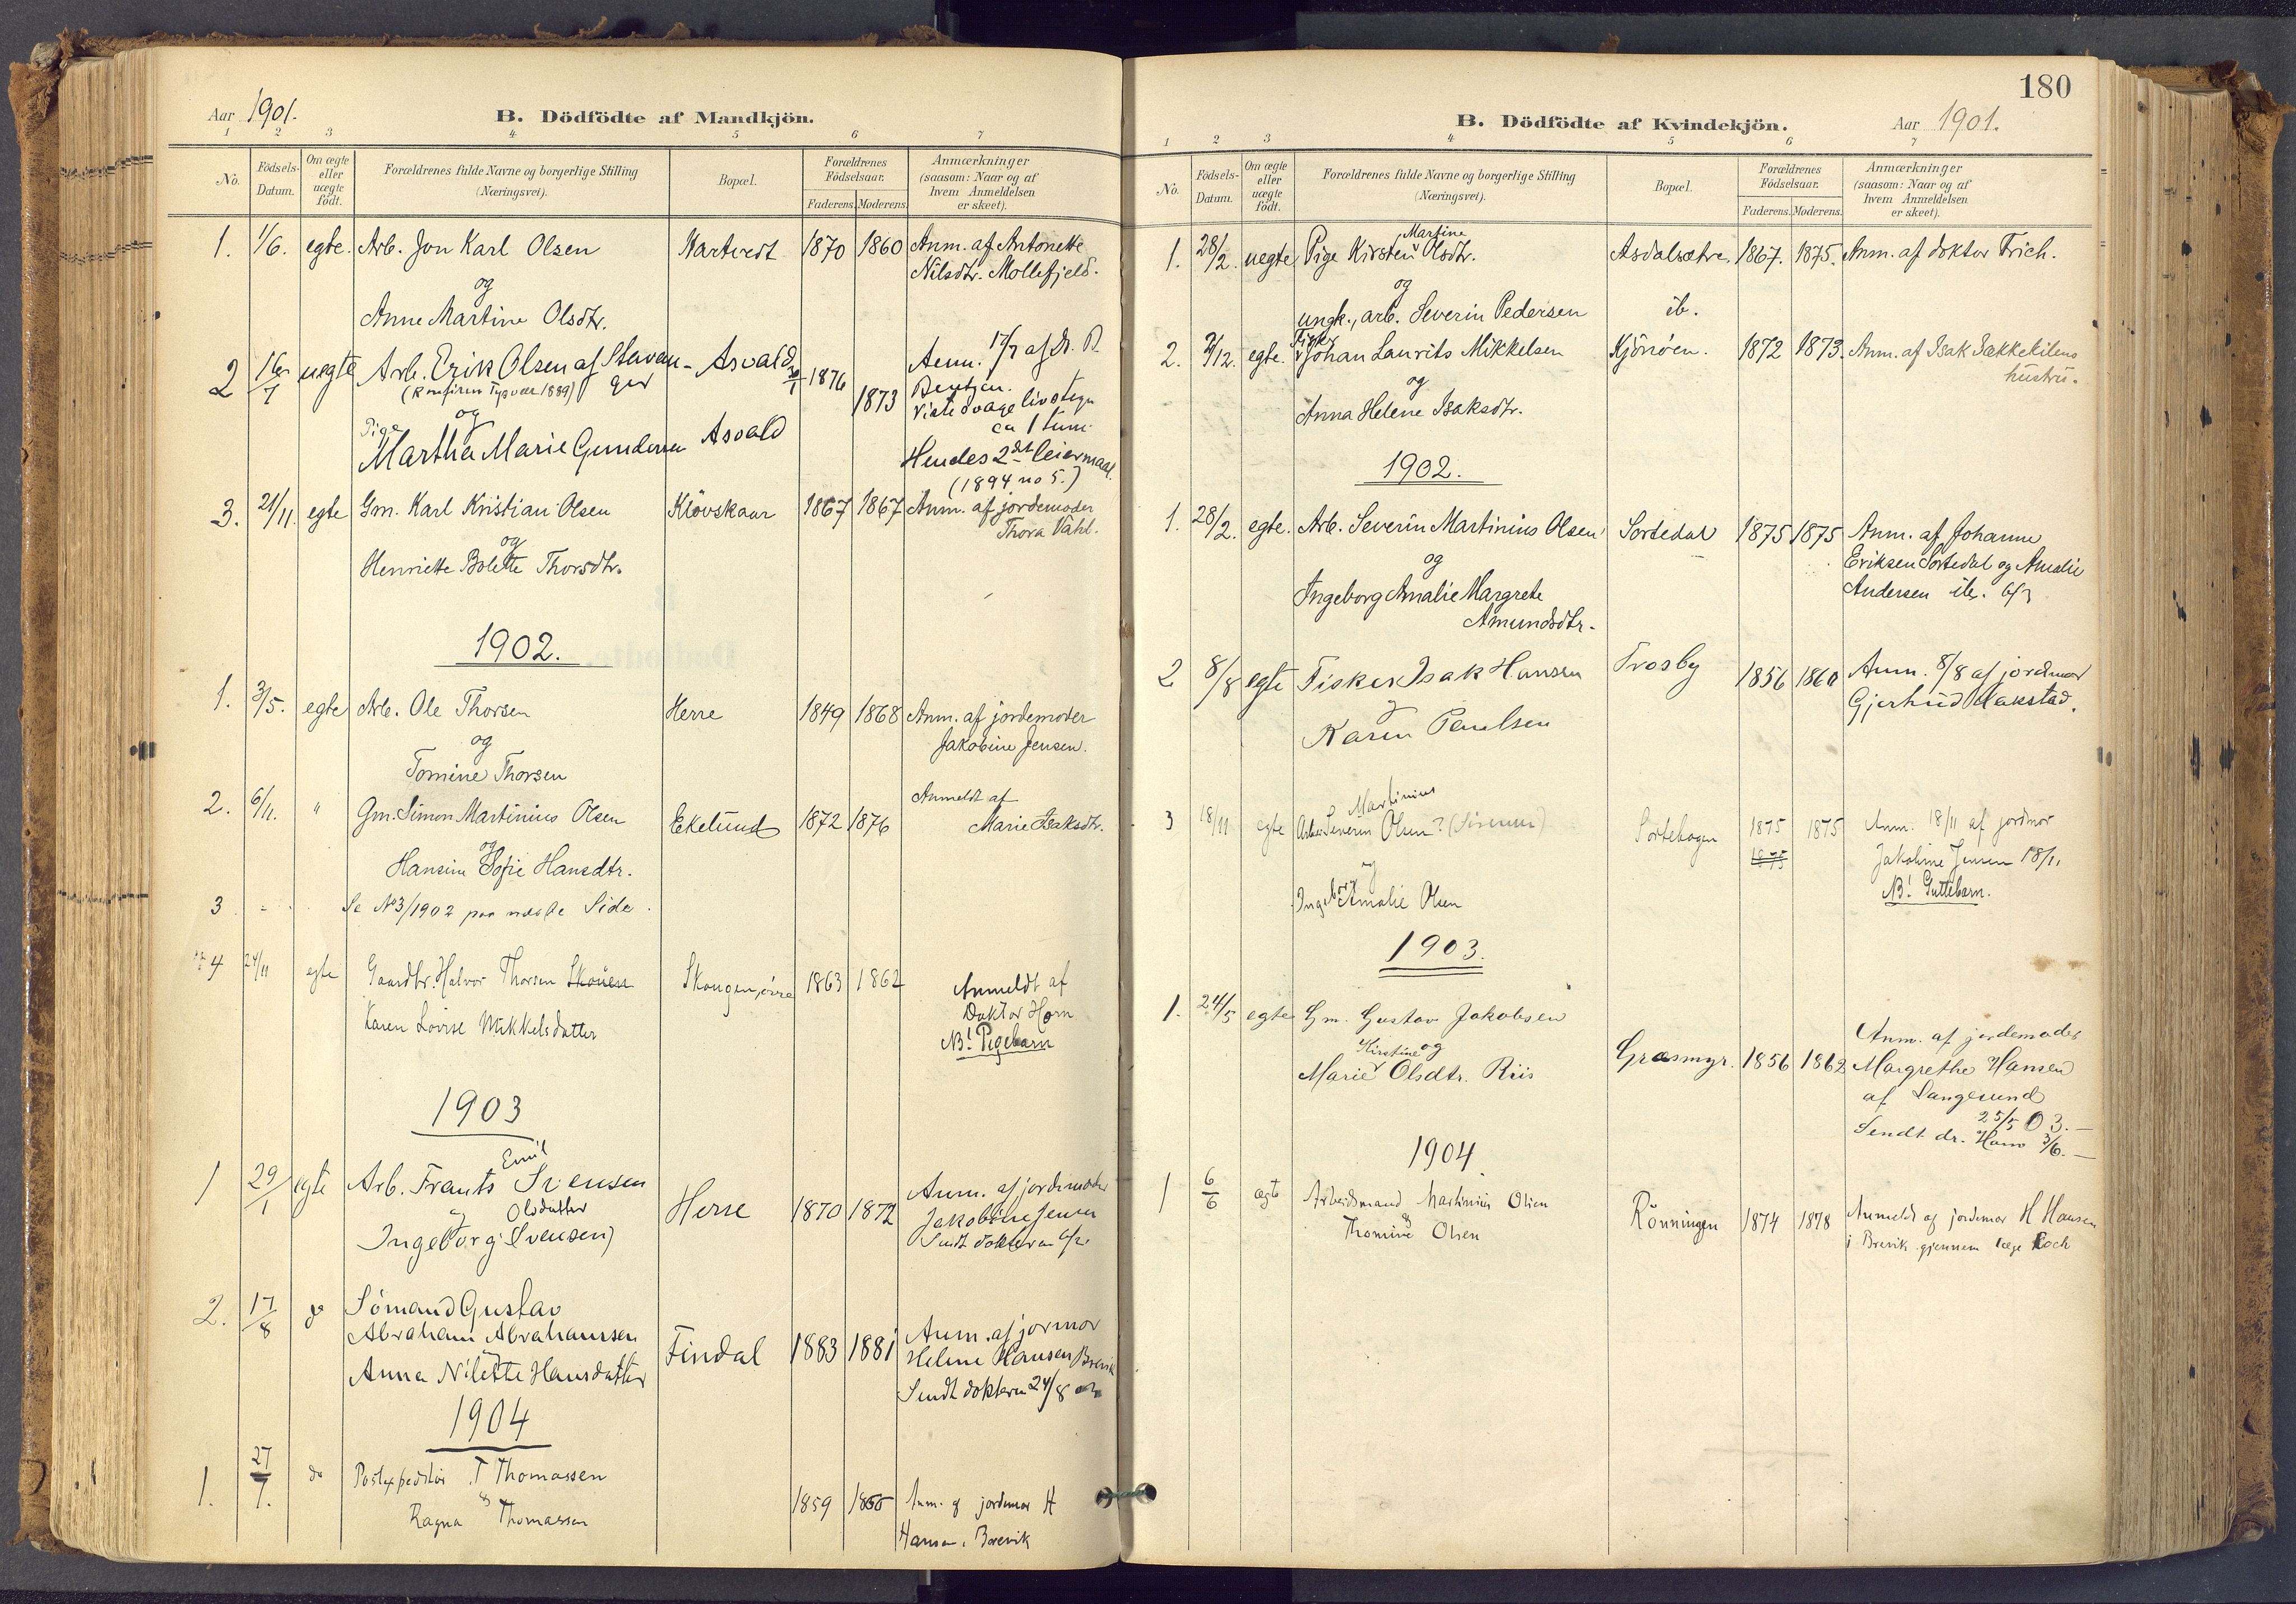 Aar 1901.
B. Dödfödte af Mandkjön.
1 2 3 4 5 6 7
No.
Födsels-Datum.
Om ægte eller uægte födt.
Forældrenes fulde Navne og borgerlige Stilling
(Næringsvei).
Bopæl.
Forældrenes Födselsaar.
Faderens. Moderens.
Anmærkninger
(saasom: Naar og af
hvem Anmeldelsen
er skeet).
1. 1/6. egte. Arb. Jon Karl Olsen Kartvedt 1870 1860 Anm. af Antonette
Nilsdtr. Mollefjeld.
og
Anne Martine Olsdtr.
2 16/7 uegte Arb. Erik Olsen af Stavan- Asvald 1876 Anm. 17/7 af
ger
(Konfirm Tysvær 1889)
1873
viste svage livstegn
ca 1 time
og
Pige
Martha Marie Gundersen Asvald
Hendes 2det leiermaal.
(1894 no 5.)
3. 21/11. egte Gm. Karl Kristian Olsen Klövskaar 1867 1867 Anm. af jordemoder
Thora Vahl.
og
Henriette Bolette Thorsdtr.
1902.
1. 3/5. egte Arb. Ole Thorsen Herre 1849 1868 Anm. af jordemoder
Jakobine Jensen.
og
Tomine Thorsen
2. 6/11. " Gm. Simon Martinius Olsen Ekelund 1872 1876 Anmeldt af
Marie Isaksdtr.
og
Hansine Sofie Hansdtr.
3 - Se No 3/1902 paa næste Side.
4 24/11 egte Gaardbr. Halvor Thorsen Skouen Skougen, övre 1863 1862 Anmeldt af
Karen Lovise Mikkelsdatter
Doktor Horn
NB! Pigebarn
1903
1 29/1 egte Arb. Frants Emil Svensen Herre 1870 1872 Anm. af jordemoder
og Olsdatter
Jakobine Jensen
Ingeborg (Svensen)
Sendt doktoren 6/2.
2. 17/8 do Sömand Gustav
Abraham Abrahamsen Findal 1883 1881 Anm. af jormor
Helene Hansen Brevik
Anna Nilette Hansdatter
Sendt doktoren 24/8
1904
1. 27/7. do Postexpeditör T Thomassen 1859 1866 Anm. af jordmor H
Hansen. Brevik
&
Ragna Thomassen
180
B. Dödfödte af Kvindekjön.
Aar 1901.
1 2 3 4 5 6 7
No.
Födsels-Datum.
Om ægte eller uægte födt.
Forældrenes fulde Navne og borgerlige Stilling
(Næringsvei).
Bopæl.
Forældrenes Födselsaar.
Faderens. Moderens.
Anmærkninger
(saasom: Naar og af
hvem Anmeldelsen
er skeet).
Martine
1. 28/2. uegte Pige Kirsten Olsdtr. Asdalsætre. 1867. 1875. Anm. af doktor Frich.
og
ungk., arb. Severin Pedersen ib.
Fisker
2. 2/12. egte. Johan Laurits Mikkelsen Kjönöen. 1872 1873. Anm. af Isak Sækkekilens
hustru.
og
Anna Helene Isaksdtr.
1902.
1. 28/2. egte. Arb. Severin Martinius Olsen Sortedal 1875 1875 Anm. af Johanne
Eriksen Sortedal og Amalie
Andersen ib. 6/3
og
Ingeborg Amalie Margrete
Amundsdtr.
2 8/8 egte Fisker Isak Hansen Trosby 1856 1860 Anm. 8/8 af jordmor
Gjertrud Hakstad.
og
Karen Paulsen
Martinius
3 18/11 egte Arbei Severin Olsen? Sortehogen 1875 1875 Anm. 18/11 af jordmor
1875
Jakobine Jensen 18/11
og
NB! Guttebarn.
Ingeborg Amalie Olsen
1903.
1. 24/5 egte Gm. Gustav Jakobsen
Kirstine og
Marie Olsdtr. Riis Græsmyr. 1856 1862 Anm. af jordemoder
Margrethe Hansen
af Langesund
25/5 03.
Sendt dr. Horn 3/6.
1904.
1 6/6 egte Arbeidsmand Martinius Olsen Rönningen 1874 1878 Anmeldt af jordmor H Hansen
&
Thomine Olsen
i Brevik gjennem læge Koch